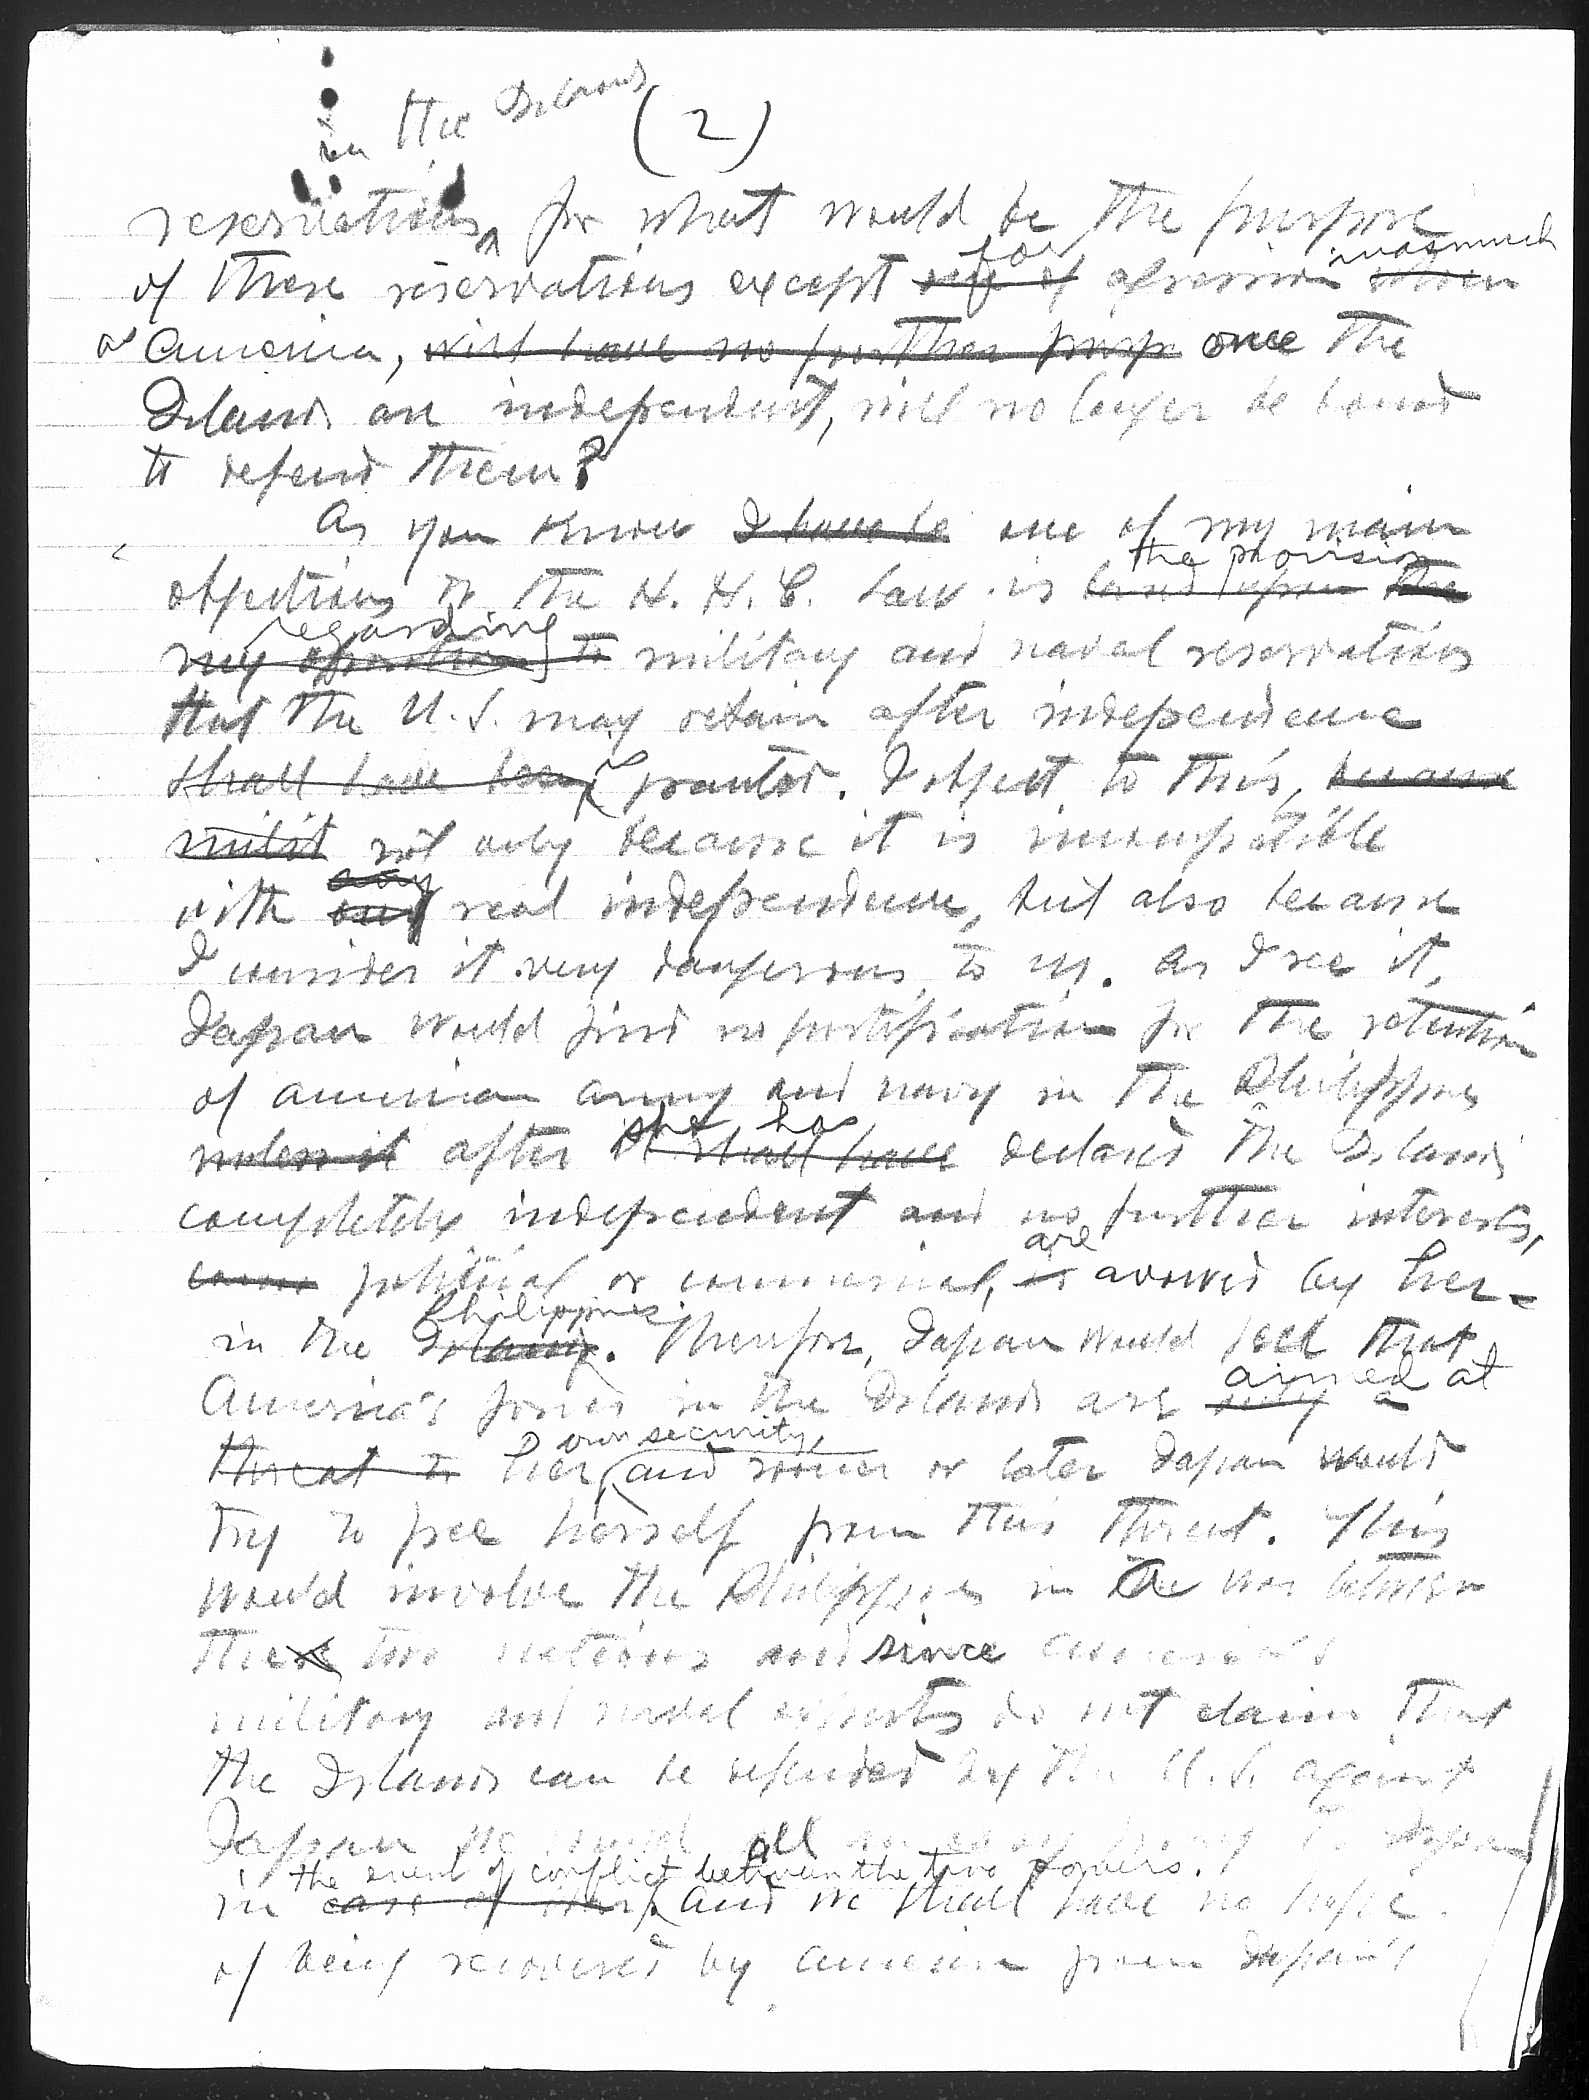 in the Islands
(2)
reservations for what would be the purpose
of these reservations except for agression inasmuch
as America, will have no further purp once the
Islands are independent, will no longer be bound
to defend them?
As you know I have be one of my main
objections to the H. H. C. Law is the provision
based upon the
regarding
my opposition to military and naval reservations
that the U.S. may retain after independence
shall have been granted. I object to this, because
milit not only because it is incompatible
any
with any real independence, but also because
I consider it very dangerous to us. As I see it,
Japan would find no justification for the retention
of American army and navy in the Philippines
she has
unless it after it shall have declared the Islands
completely independent and no further interests,
are
political or commercial, is avowed by her
Philippines
in the Islands. Therefore, Japan would feel that
aimed at
America's forces in the Islands are only a
own security,
threat to her and sooner or later Japan would
try to free herself from this threat. This
would involve the Philippines in the war between
these two nations and since America's
military and naval experts do not claim that
the Islands can be defended by the U.S. against
Japan we would all Japan
the event of conflict between the two powers.
in case of war, and we shall have no hope
of being recovered by America from Japan's